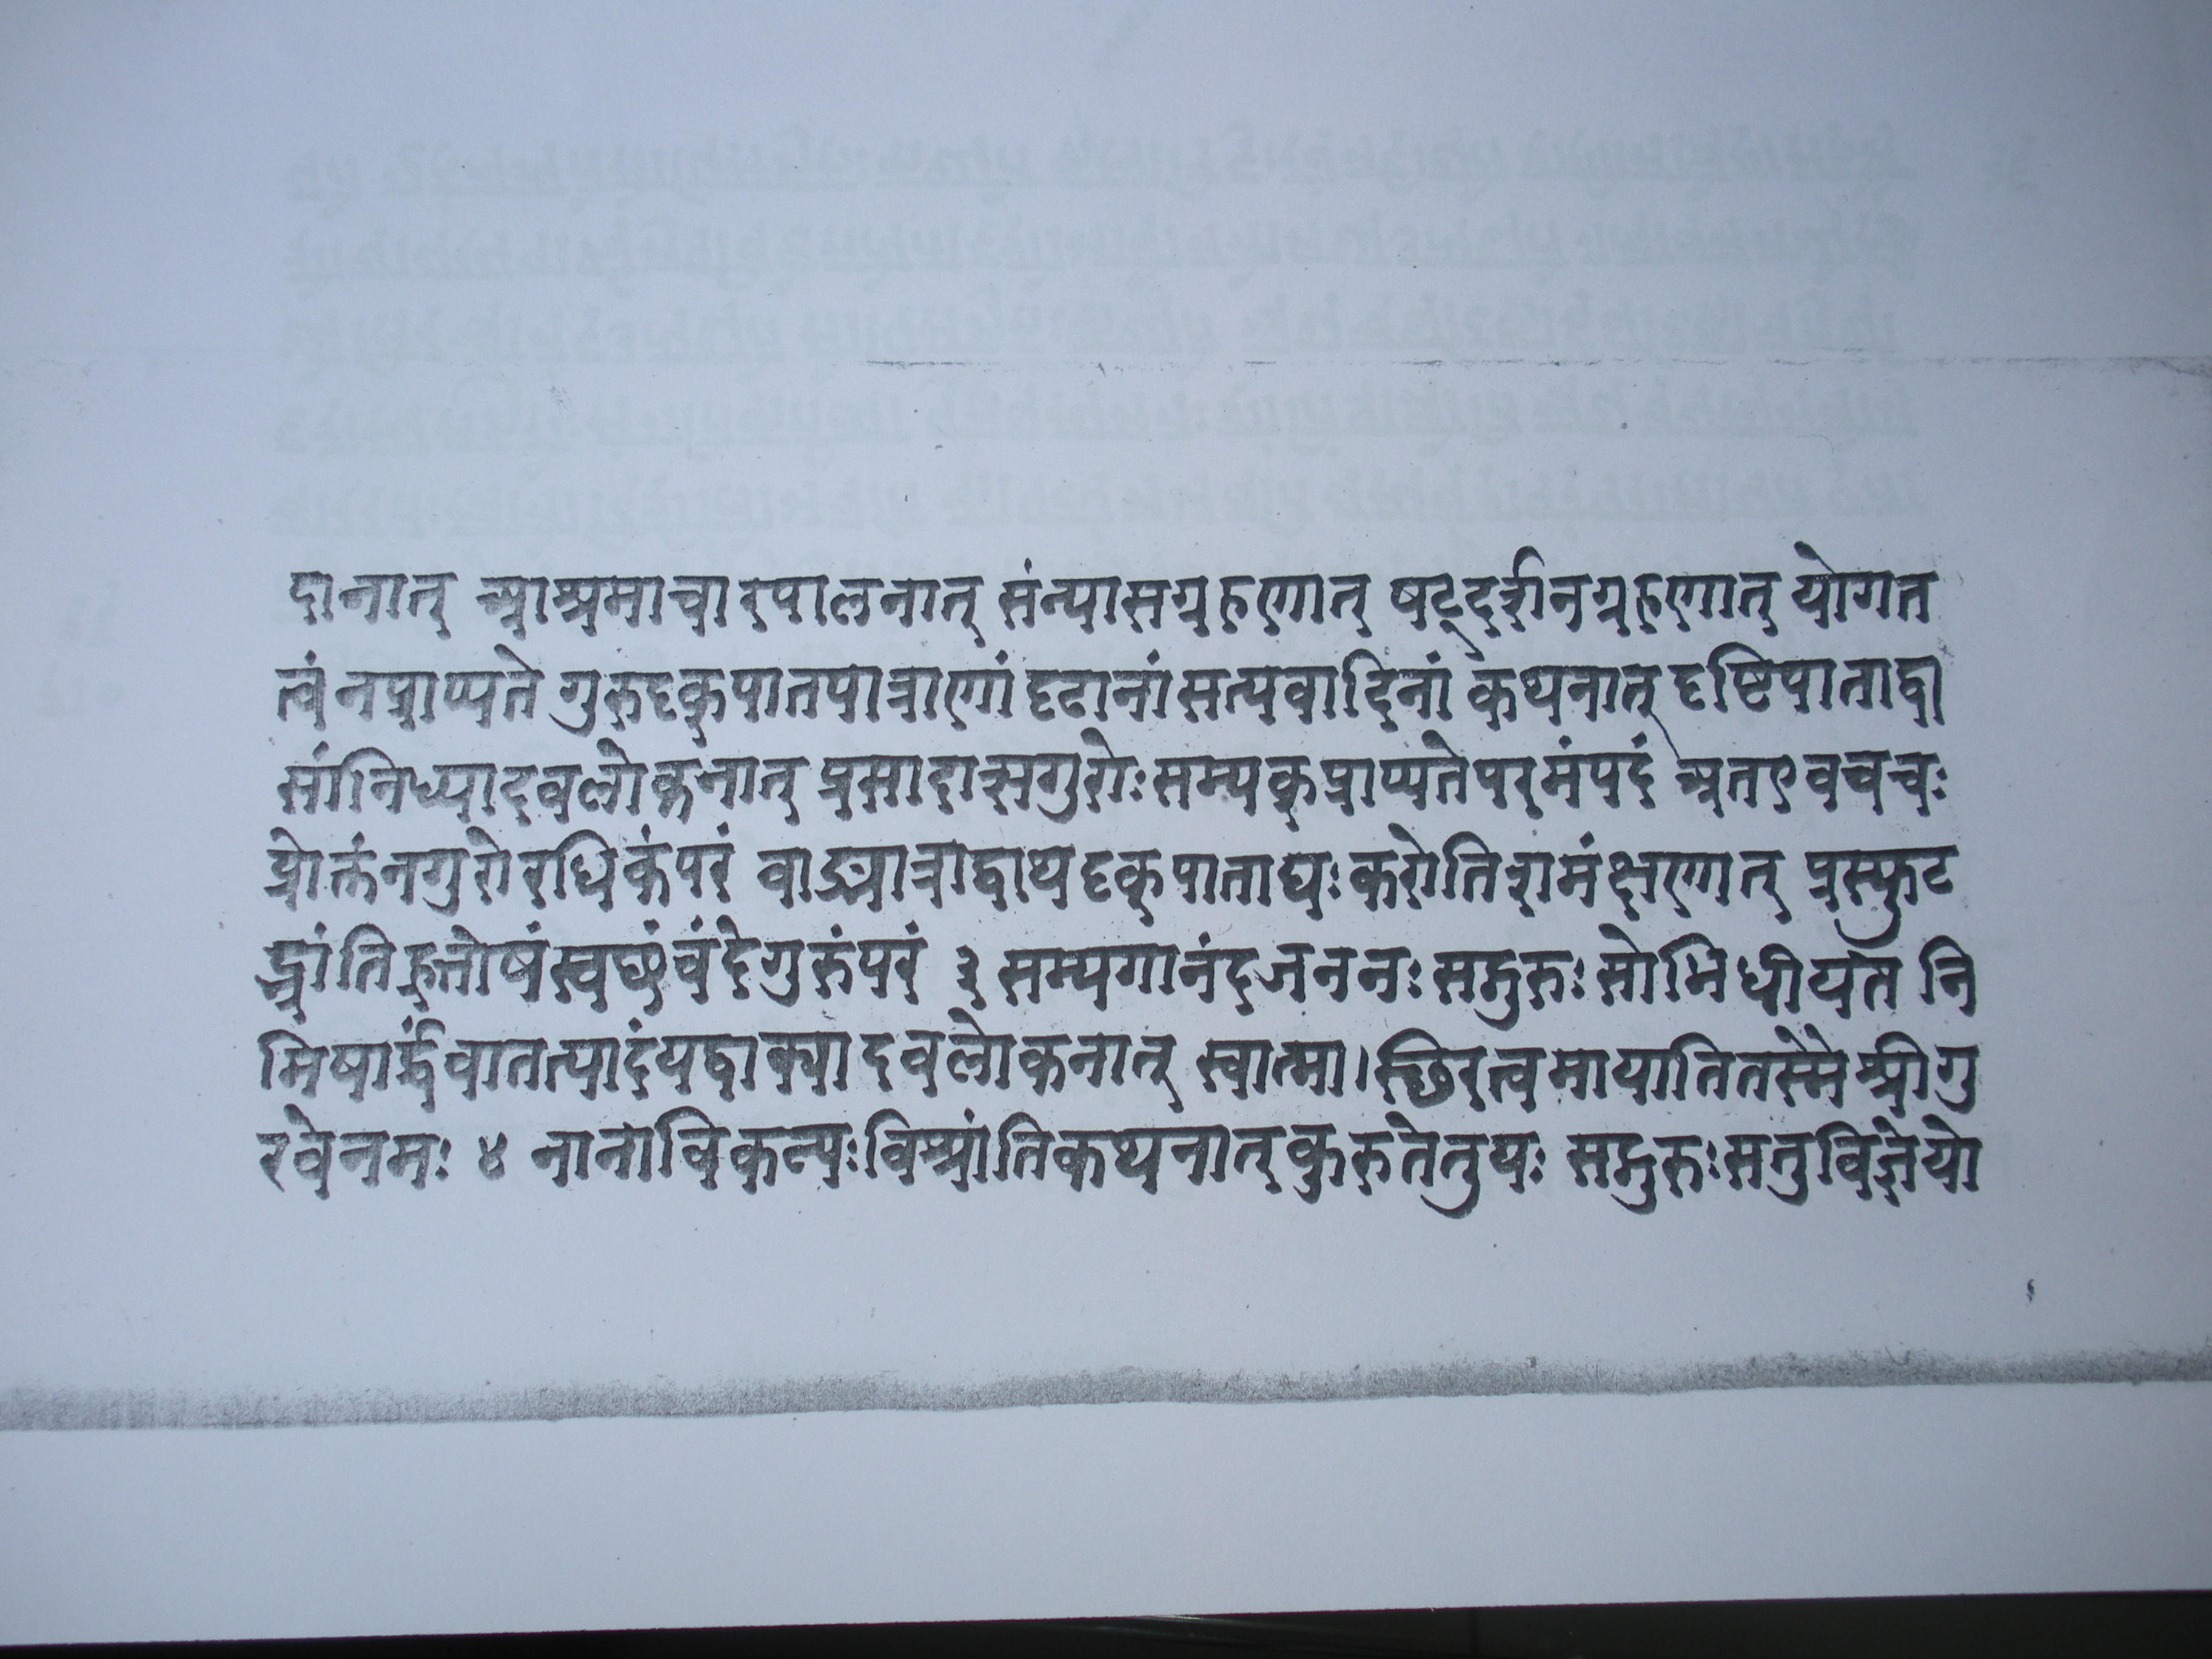 दानात् आश्रमाचारपालनात् संन्यासग्रहणात् षट्दर्शनग्रहणात् योगत
त्वं नप्राप्यते गुरुदृक्पातपात्राणां दृढानां सत्यवादिनां कथनात् दृष्टिपाताद्वा
सांनिध्यादवलोकनात् प्रसादात्सगुरोः सम्यक्प्राप्यतेपरमंपदं अतएववचः
प्रोक्तंनगुरोरधिकंपरं वाङ्मात्राद्वाथदृक्पाताद्यः करोतिशमंक्षणात् प्रस्फुट
द्भ्रांतिहृत्तोषंस्वच्छंवंदेगुरुंपरं ३ सम्यगानंदजननः सद्गुरुः सोभिधीयते नि
मिषार्द्धंवातत्पादंयद्वाक्यादवलोकनात् स्वात्मा।स्थिरत्वमायातितस्मै श्रीगु
रवेनमः ४ नानाविकल्पःविश्रांतिकथनात्कुरुतेतुयः सद्गुरुःसतुविज्ञेयो